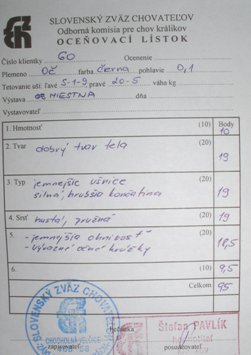 SLOVENSKÝ ZVÄZ CHOVATEĽOV
Odborná komisia pre chov králikov
OCEŇOVACÍ LÍSTOK
Číslo klietky 60 Ocenenie
Plemeno OČ farba čierna pohlavie 0,1
Tetovanie uši: ľavé 5-1-9 pravé 20-5 váha kg
Výstava MIESTNA dňa
Vystavovateľ
1. Hmotnosť (10) Body
10
2. Tvar dobrý tvar tela (20) 19
3. Typ jemnejšie ušnice (20)
silná, hrubšia končatina 19
4. Srsť hustá, pružná (20) 19
5. - jemnejšia (20)
- výrazné očné krúžky 18,5
6. (10) 9,5
Celkom 95
SLOVENSKÝ ZVÄZ CHOVATEĽOV
Štefan PAVLÍK
zapisovateľ posudzovateľ